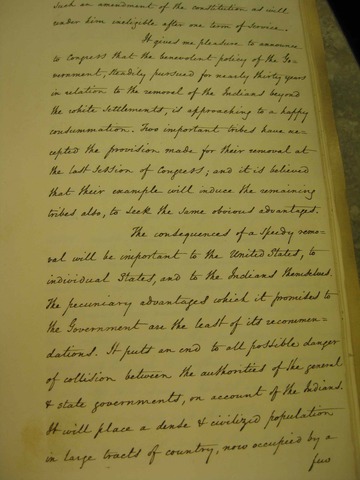 such an amendment of the constitution as will
render him ineligible after one term of service.
It gives me pleasure to announce
to Congress that the benevolent policy of the Go-
vernment, steadily pursued for nearly thirty years
in relation to the removal of the Indians beyond
the white settlements, is approaching to a happy
consummation. Two important tribes have ac-
cepted the provision made for their removal at
the last session of Congress; and it is believed
that their example will induce the remaining
tribes also, to seek the same obvious advantages.
The consequences of a speedy remo-
val will be important to the United States, to
individual States, and to the Indians themselves.
The pecuniary advantages which it promises to
the Government are the least of its recommen-
dations. It puts an end to all possible danger
of collision between the authorities of the general
& state governments, on account of the Indians.
It will place a dense & civilized population
in large tracts of country, now occupied by a
few